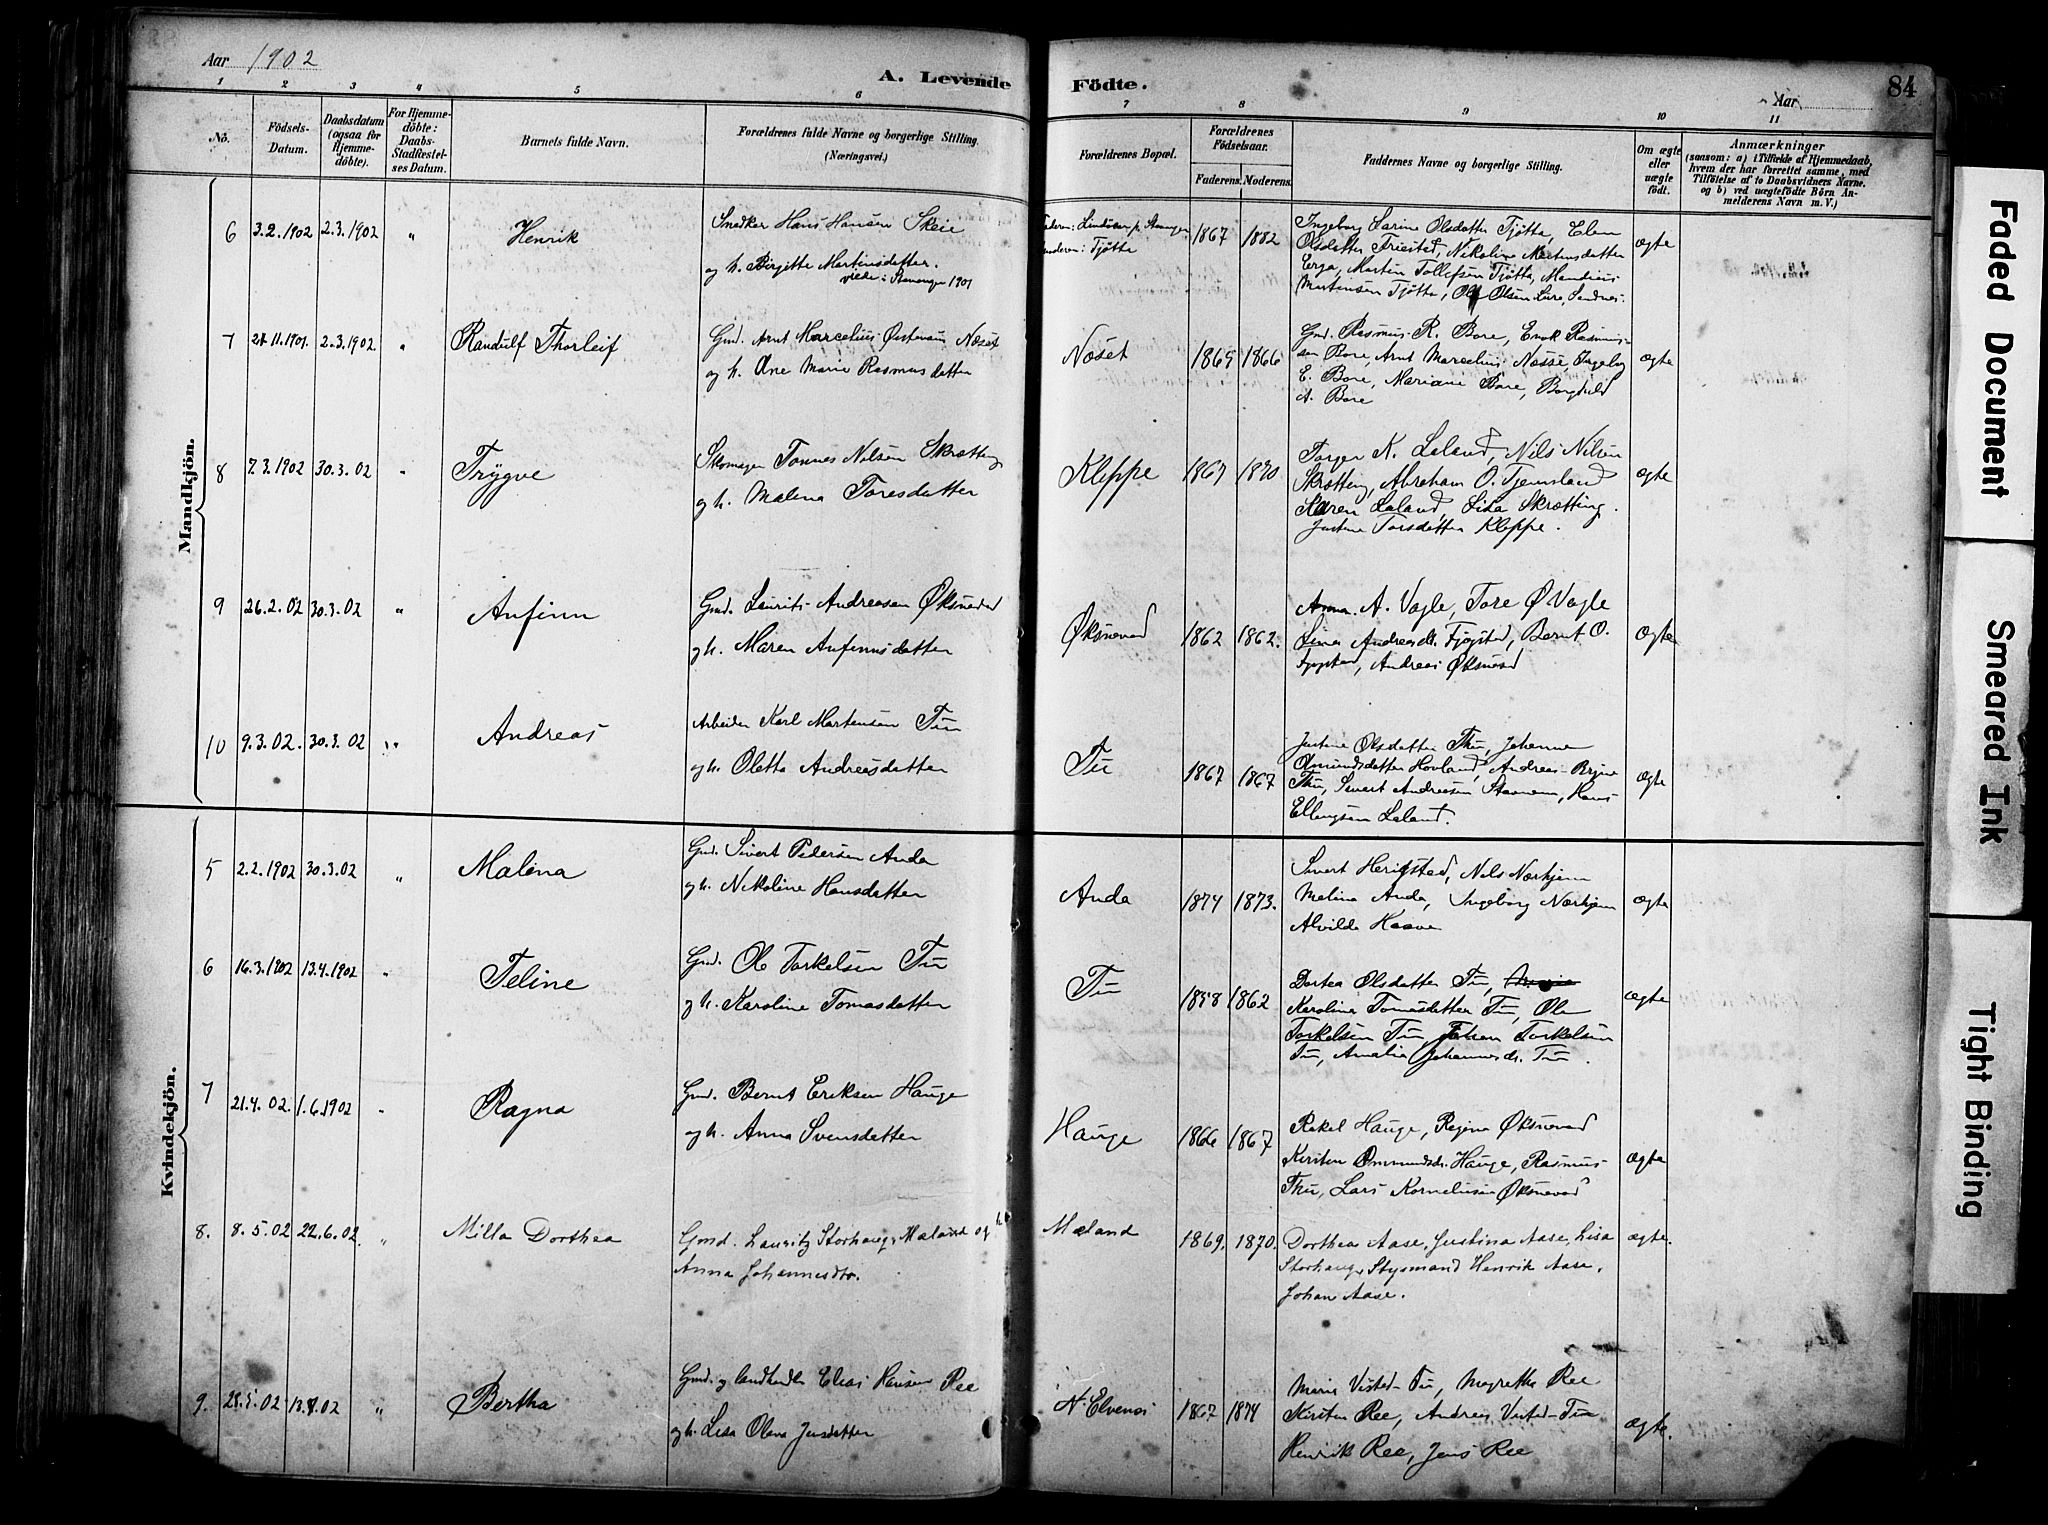 Aar 1902
A. Levende Födte.
Aar
84
1 2 3 4 5 6 7 8 9 10 11
No.
Födsels-Datum.
Daabsdatum (ogsaa for Hjemme-döbte).
For Hjemme-döbte: Daabs-Stadfæstel-ses Datum.
Barnets fulde Navn.
Forældrenes fulde Navne og borgerlige Stilling. (Næringsvei.)
Forældrenes Bopæl.
Forældrenes Födselsaar.
Faderens. Moderens.
Faddernes Navne og borgerlige Stilling.
Om ægte eller uægte födt.
Anmærkninger
(saasom: a) i Tilfælde af Hjemmedaab, hvem der har forrettet samme, med Tilföielse af to Daabsvidners Navne, og b) ved uægtefödte Börn An-melderens Navn m. V.)
Mandkjön.
6 3.2.1902 2.3.1902 " Henrik
Snedker Hans Hansen Skeie
og h. Birgitte Martinsdatter.
viede i Stavanger 1901
1867 1882
Ingeborg Karine Olsdatter Tjøtta, Elen
Olsdatter Nikoline Martensdatter
Erga, Martin Tollefsen Tjøtta, Mandrius
Martensen Tjøtta, Olsen Lure, Sandnes.
ægte
7 21.11.1901. 2.3.1902 " Randulf Thorleif
Gmd. Arnt Marcelius Østensen Næset
og h. Ane Marie Rasmusdatter
Næset 1865 1866
Gmd. Rasmus R. Bore, Enok Rasmus-
sen Bore, Arnt Marcelius Næsse, Ingeborg
E. Bore, Mariane Bore, Borghild
A. Bore
ægte
8 7.3.1902 30.3.02 " Trygve
Skomager Tønnes Nilsen Skrætting
og h. Malena Toresdatter
Kleppe 1867 1870
Torger K. Laland, Nils Nilsen
Skrætting, Abraham O. Tjemsland
Karen Laland, Lisa Skrætting.
Justine Torsdatter Kleppe.
ægte
9 26.2.02 30.3.02 " Anfinn
Gmd. Laurits Andreasen Øksnevad
og h. Maren Anfinnsdatter
Øksnevad 1862 1862.
Anna A. Vagle, Tore Ø Vagle
Lina Andreasdt. Fjøgstad, Bernt O.
Fjøgstad, Andreas Øksnevad
ægte
10 9.3.02. 30.3.02 " Andreas
Arbeider Karl Martensen Tu
og h. Oletta Andreasdatter
Tu 1867 1867
Justine Olsdatter Thu, Johanne
Omundsdatter Hovland, Andreas Bryne
Thu, Sivert Andreasen Stavnem, Hans
Ellingsen Laland.
ægte
Kvindekjön.
5 2.2.1902 30.3.02 " Malena
Gmd. Sivert Pedersen Anda
og h. Nikoline Hansdatter
Anda 1874 1873.
Sivert Herigstad, Nils Nærhjem
Malina Anda, Ingeborg Nærhjem
Alvilde Haave
ægte
6 16.3.1902 13.4.1902 " Teline
Gmd. Ole Torkelsen Tu
og h. Karoline Tomasdatter
Tu 1858 1862
Dortea Olsdatter Tu,
Karoline Tomasdatter Tu, Ole
Torkelsen Tu, Johan Torkelsen
Tu, Amalia Johannesdt. Tu.
ægte
7 21.4.02. 1.6.1902 " Ragna
Gmd. Bernt Eriksen Hauge
og h. Anna Svensdatter
Hauge 1866 1867
Rakel Hauge, Regina Øksnevad
Kirsten Ommundsdt. Hauge, Rasmus
Thu, Lars Kornelinsen Øksnevad
ægte
8. 8.5.02 22.6.02. " Milla Dorthea
Gmd. Lauritz Storhaug, Mæland og h.
Anna Johannesdtr.
Mæland 1869. 1870.
Dorthea Aase, Justina Aase, Lisa
Storhaug, Stysmand Henrik Aase,
Johan Aase.
ægte.
9. 28.5.02 13.7.02 " Bertha
Gmd. og landhandler Elias Hansen Ree
og h. Lisa Olava Jensdatter
N. Elvenes 1867 1874
Marie Vistad-Tu, Magrethe Ree
Kirsten Ree, Andreas Vistad-Tu
Henrik Ree, Jens Ree
ægte.
Faded Document
Smeared Ink
Tight Binding